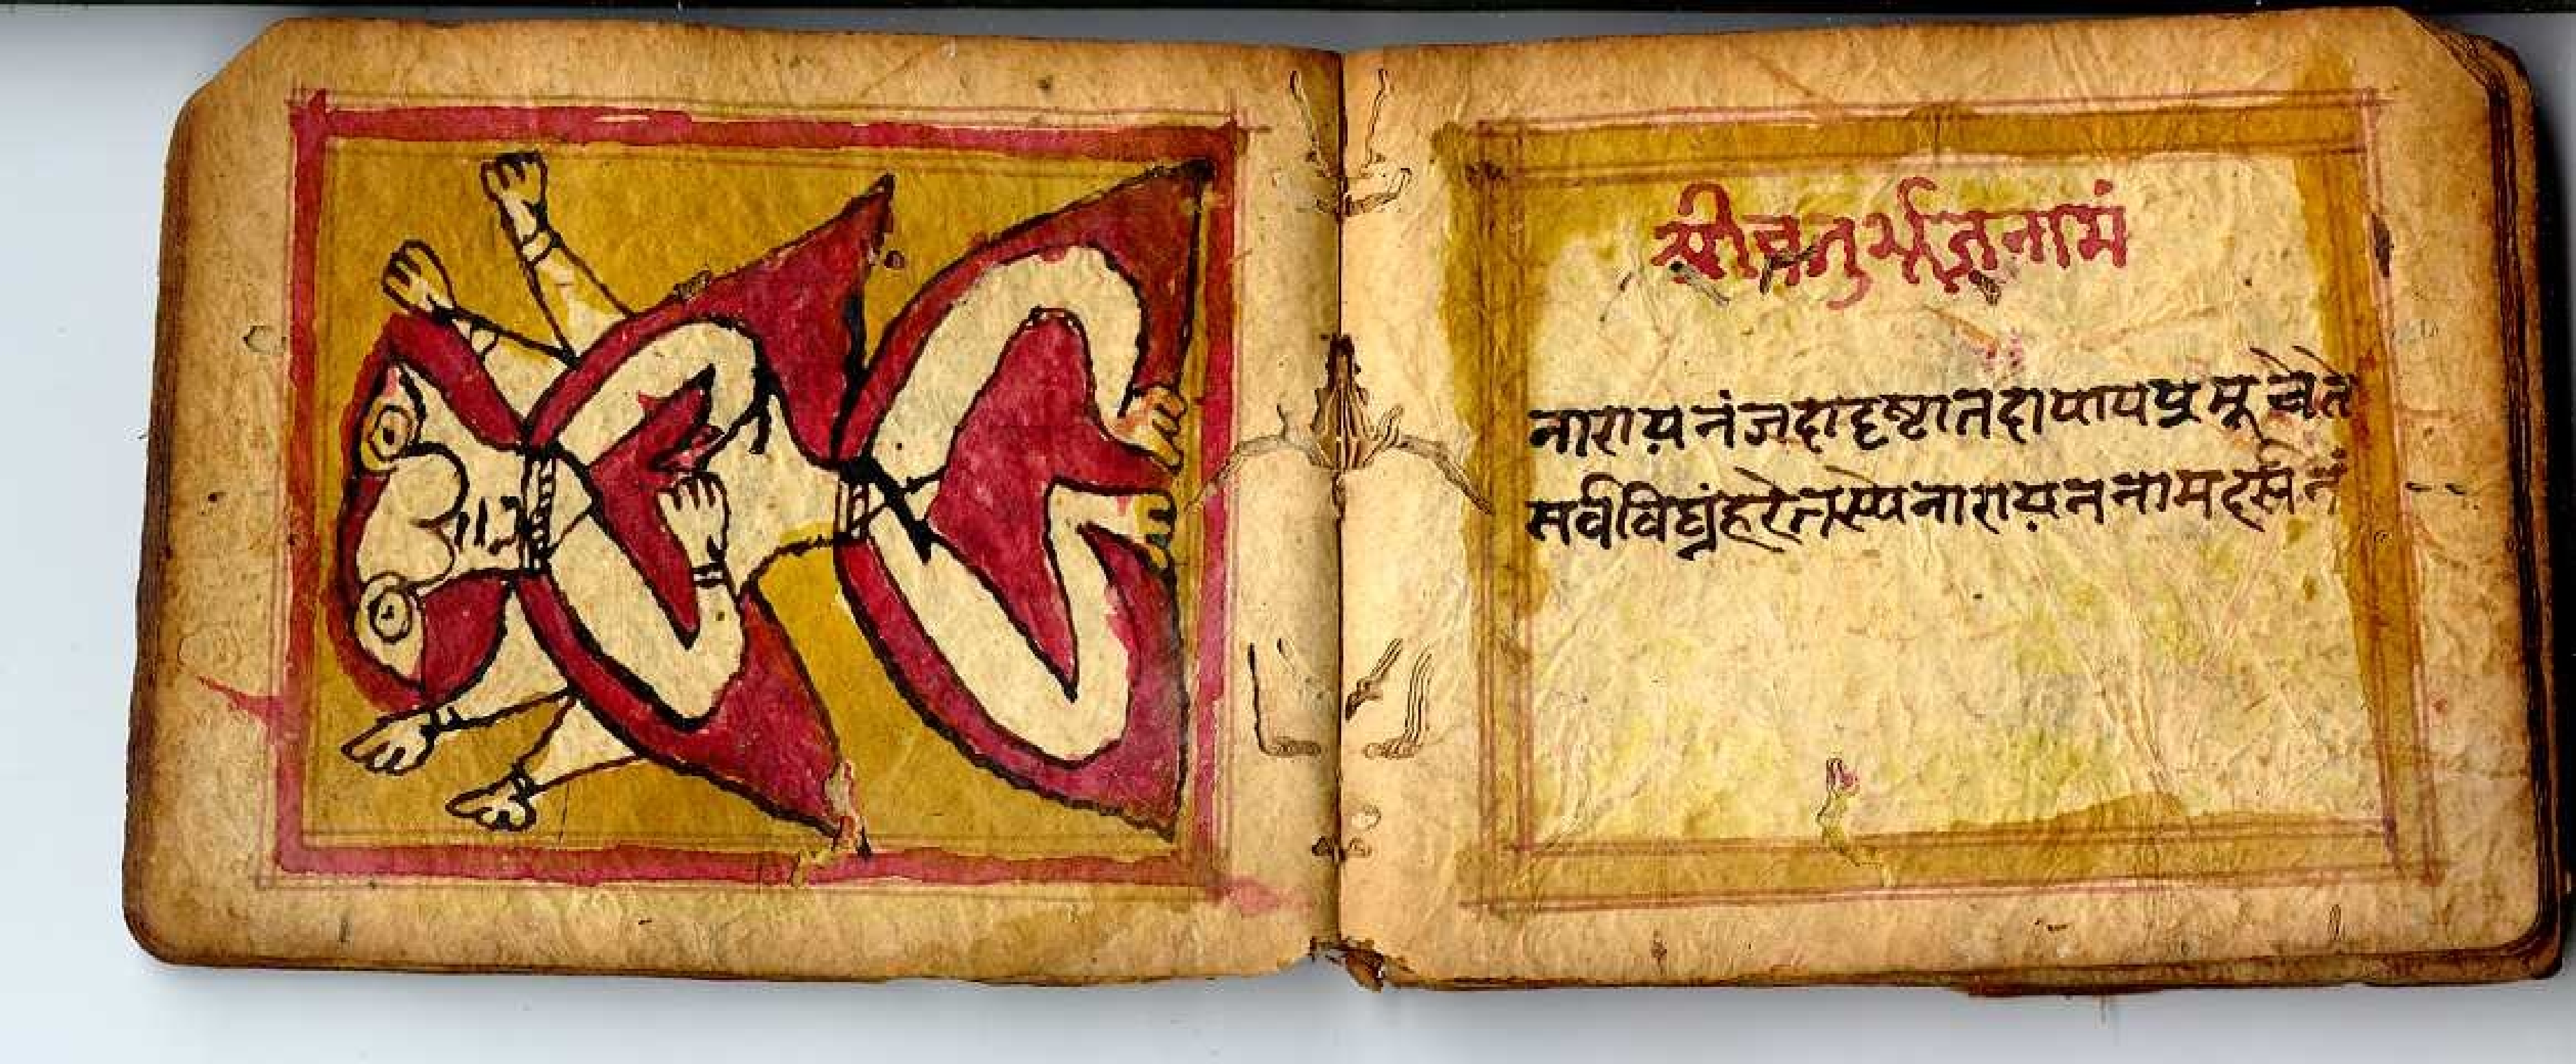 श्रीचतुर्भूजनामं
नारायनंजदादृष्टातदापापप्रमूचेते
सर्वविघ्नंहरेतस्यनारायननामदर्सनं